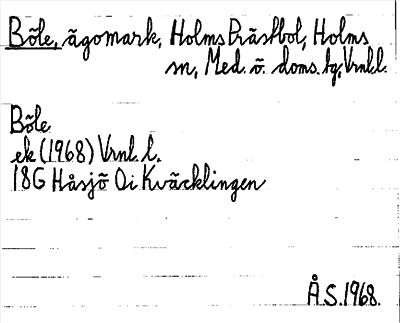 Böle, ägomark, Holms Prästbol, Holms
sn, Med. ö. doms. tg, Vrnl. l.
Böle
ek (1968) Vrnl. l.
18G Håsjö Oi Kväcklingen
Å.S. 1968.